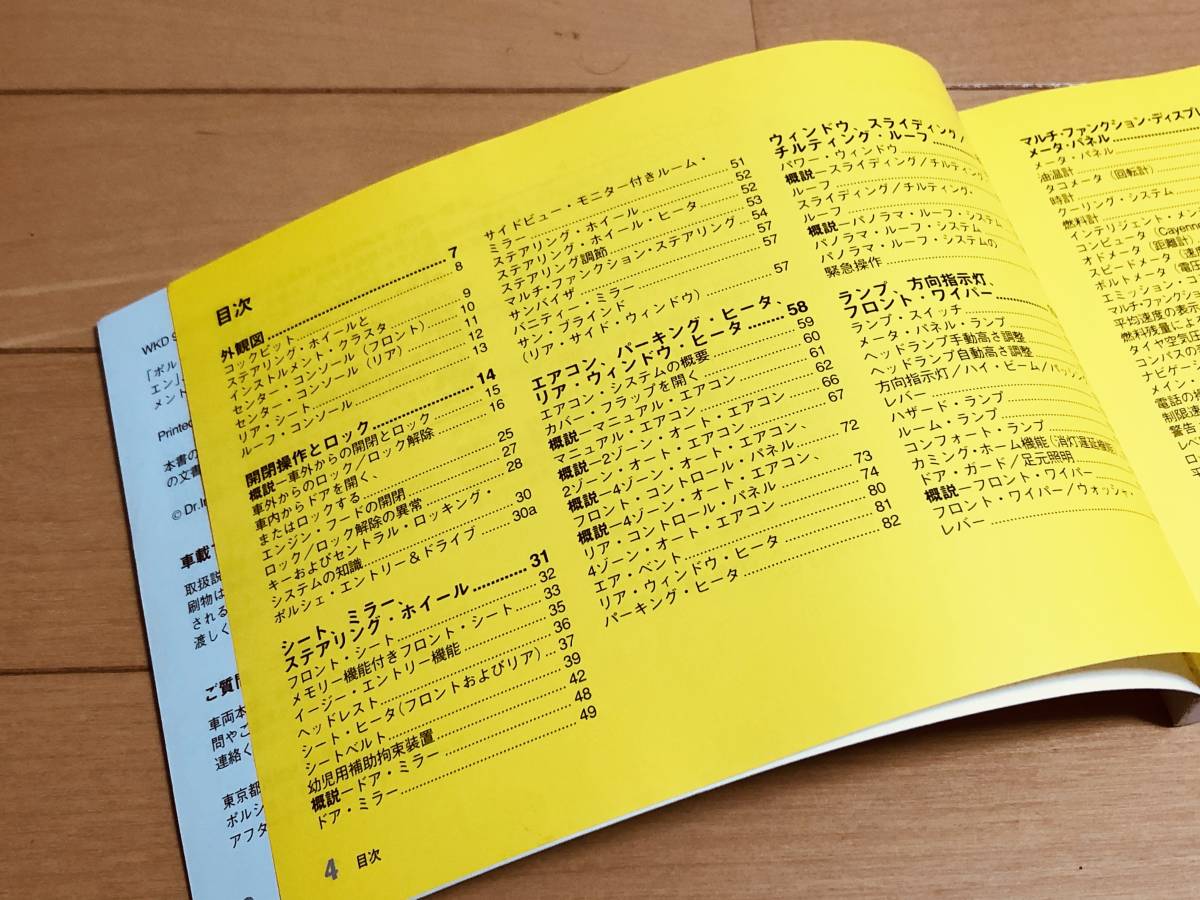 WKD
「ポル
エン」
メント
Printed
本書の
の文書
© Dr.In
車載
取扱説
刷物は
される
渡しく
ご質問
車両本
問やご
連絡く
東京都
ポルシ
アフタ
目次
外観図 7
コックピット 8
ステアリング・ホイールと
インストルメント・クラスタ 9
センター・コンソール（フロント） 10
センター・コンソール（リア） 11
リア・シート 12
ルーフ・コンソール 13
開閉操作とロック 14
概説―車外からの開閉とロック 15
車外からのロック／ロック解除 16
車内からドアを開く、
またはロックする 25
エンジン・フードの開閉 27
ロック／ロック解除の異常 28
キーおよびセントラル・ロッキング・
システムの知識 30
ポルシェ・エントリー＆ドライブ 30a
シート、ミラー、
ステアリング・ホイール 31
フロント・シート 32
メモリー機能付きフロント・シート 33
イージー・エントリー機能 35
ヘッドレスト 36
シート・ヒータ（フロントおよびリア） 37
シートベルト 39
幼児用補助拘束装置 42
概説―ドア・ミラー 48
ドア・ミラー 49
サイドビュー・モニター付きルーム・
ミラー 51
ステアリング・ホイール 52
ステアリング・ホイール・ヒータ 52
ステアリング調節 53
マルチ・ファンクション・ステアリング 54
サンバイザ 57
バニティー・ミラー 57
サン・ブラインド
（リア・サイド・ウィンドウ） 57
エアコン、パーキング・ヒータ、
リア・ウィンドウ・ヒータ 58
エアコン・システムの概要 59
カバー・フラップを開く 60
概説―マニュアル・エアコン 61
マニュアル・エアコン 62
概説―2ゾーン・オート・エアコン 66
2ゾーン・オート・エアコン 67
概説―4ゾーン・オート・エアコン、
フロント・コントロール・パネル 72
概説―4ゾーン・オート・エアコン、
リア・コントロール・パネル 73
4ゾーン・オート・エアコン 74
エア・ベント 80
リア・ウィンドウ・ヒータ 81
パーキング・ヒータ 82
ウィンドウ、スライディング／
チルティング・ルーフ
パワー・ウィンドウ
概説―スライディング／チルティング・
ルーフ
スライディング／チルティング・
ルーフ
概説―パノラマ・ルーフ・システム
パノラマ・ルーフ・システム
パノラマ・ルーフ・システムの
緊急操作
ランプ、方向指示灯、
フロント・ワイパー
ランプ・スイッチ
メータ・パネル・ランプ
ヘッドランプ手動高さ調整
ヘッドランプ自動高さ調整
方向指示灯／ハイ・ビーム／パッシング
レバー
ハザード・ランプ
ルーム・ランプ
コンフォート・ランプ
カミング・ホーム機能（消灯遅延機能）
ドア・ガード／足元照明
概説―フロント・ワイパー
フロント・ワイパー／ウォッシャ・
レバー
マルチ・ファンクション・ディスプレ
メータ・パネル
メータ・パネル
油温計
タコメータ（回転計）
時計
クーリング・システム
燃料計
インテリジェント・メン
コンピュータ（Cayenne
オドメータ（距離計）
スピードメータ（速度
ボルトメータ（電圧
エミッション・コ
マルチ・ファンクシ
平均速度の表示
燃料残量によ
タイヤ空気圧
コンパスの表
ナビゲー
メイン・
電話の操
制限速
警告
レベ
4 目次